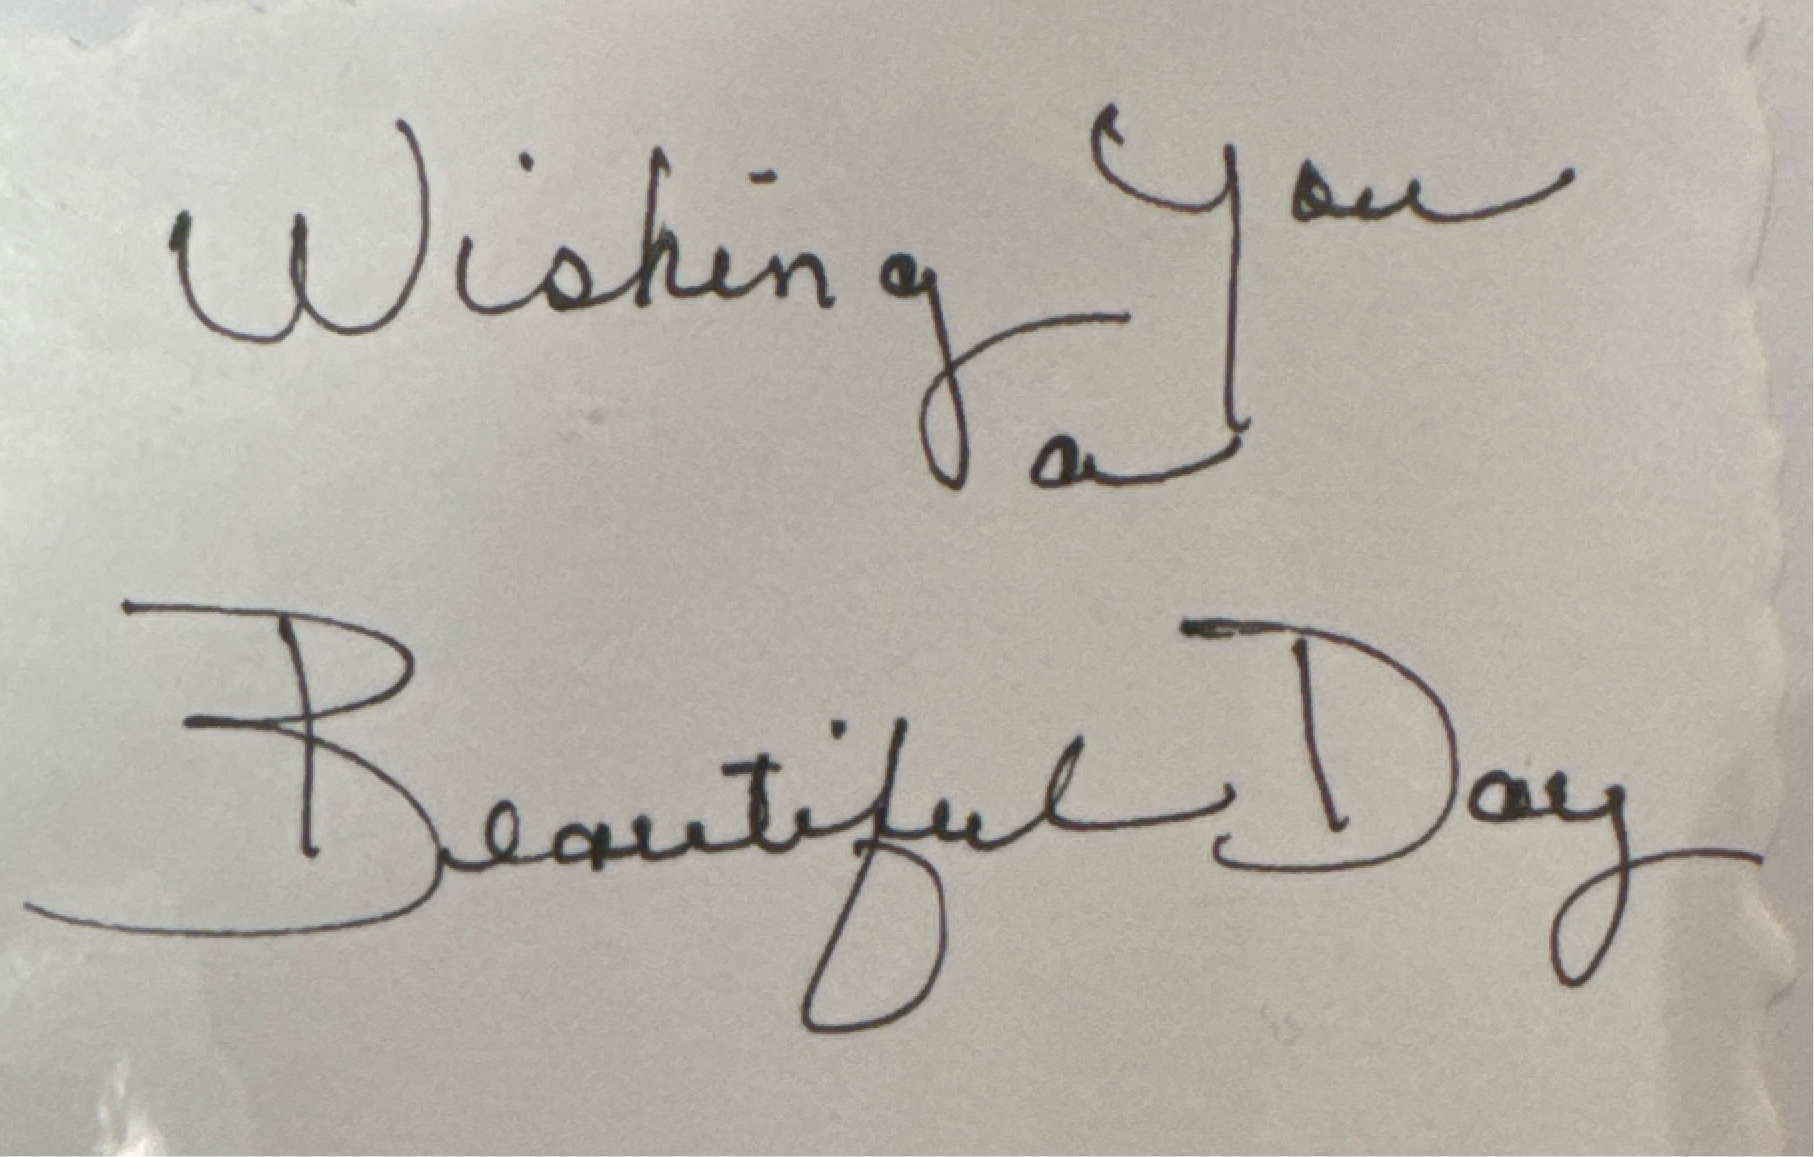 Wishing You
a
Beautiful Day